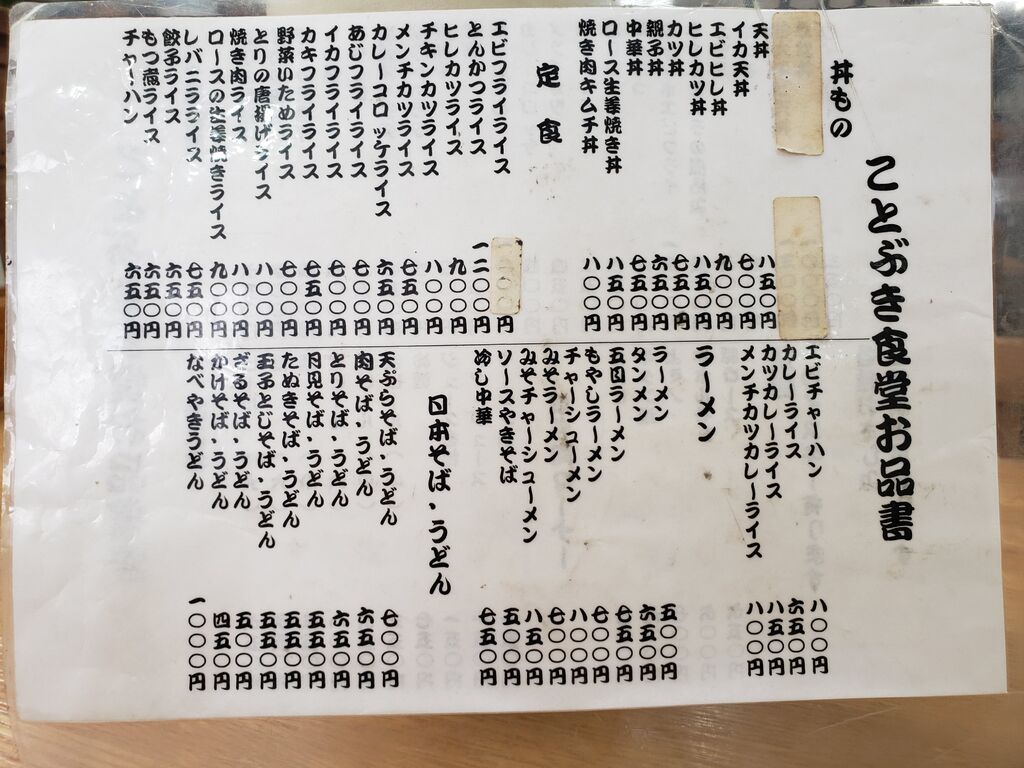 ことぶき食堂お品書
丼もの
天丼 八五〇円
イカ天丼 七〇〇円
エビヒレ丼 九〇〇円
ヒレカツ丼 八五〇円
カツ丼 七五〇円
親子丼 六五〇円
中華丼 七五〇円
ロース生姜焼き丼 八五〇円
焼き肉キムチ丼 八〇〇円
定食
エビフライライス 円
とんかつライス 一二〇〇円
ヒレカツライス 九〇〇円
チキンカツライス 八〇〇円
メンチカツライス 七五〇円
カレーコロッケライス 六五〇円
あじフライライス 七〇〇円
イカフライライス 七〇〇円
カキフライライス 七五〇円
野菜いためライス 七〇〇円
とりの唐揚げライス 八〇〇円
焼き肉ライス 八〇〇円
ロースの生姜焼きライス 九〇〇円
レバニラライス 七五〇円
餃子ライス 六五〇円
もつ煮ライス 六五〇円
チャーハン 六五〇円
エビチャーハン 八〇〇円
カレーライス 六五〇円
カツカレーライス 八五〇円
メンチカツカレーライス 八〇〇円
ラーメン
ラーメン 五〇〇円
タンメン 六五〇円
五目ラーメン 七五〇円
もやしラーメン 七〇〇円
チャーシューメン 八〇〇円
みそラーメン 七〇〇円
みそチャーシューメン 八五〇円
ソースやきそば 五〇〇円
冷し中華 七五〇円
日本そば・うどん
天ぷらそば・うどん 七〇〇円
肉そば・うどん 六五〇円
とりそば・うどん 六五〇円
月見そば・うどん 五五〇円
たぬきそば・うどん 五五〇円
玉子とじそば・うどん 五五〇円
ざるそば・うどん 五〇〇円
かけそば・うどん 四五〇円
なべやきうどん 一〇〇〇円